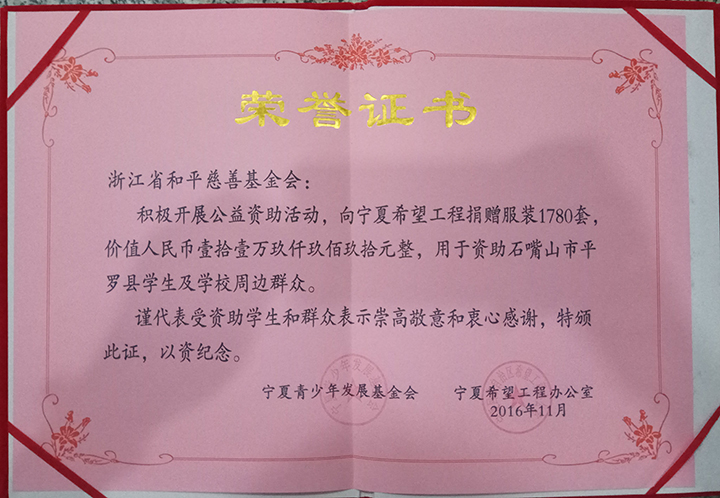 荣誉证书
浙江省和平慈善基金会：
积极开展公益资助活动，向宁夏希望工程捐赠服装1780套，
价值人民币壹拾壹万玖仟玖佰玖拾元整，用于资助石嘴山市平
罗县学生及学校周边群众。
谨代表受资助学生和群众表示崇高敬意和衷心感谢，特颁
此证，以资纪念。
宁夏青少年发展基金会 宁夏希望工程办公室
2016年11月